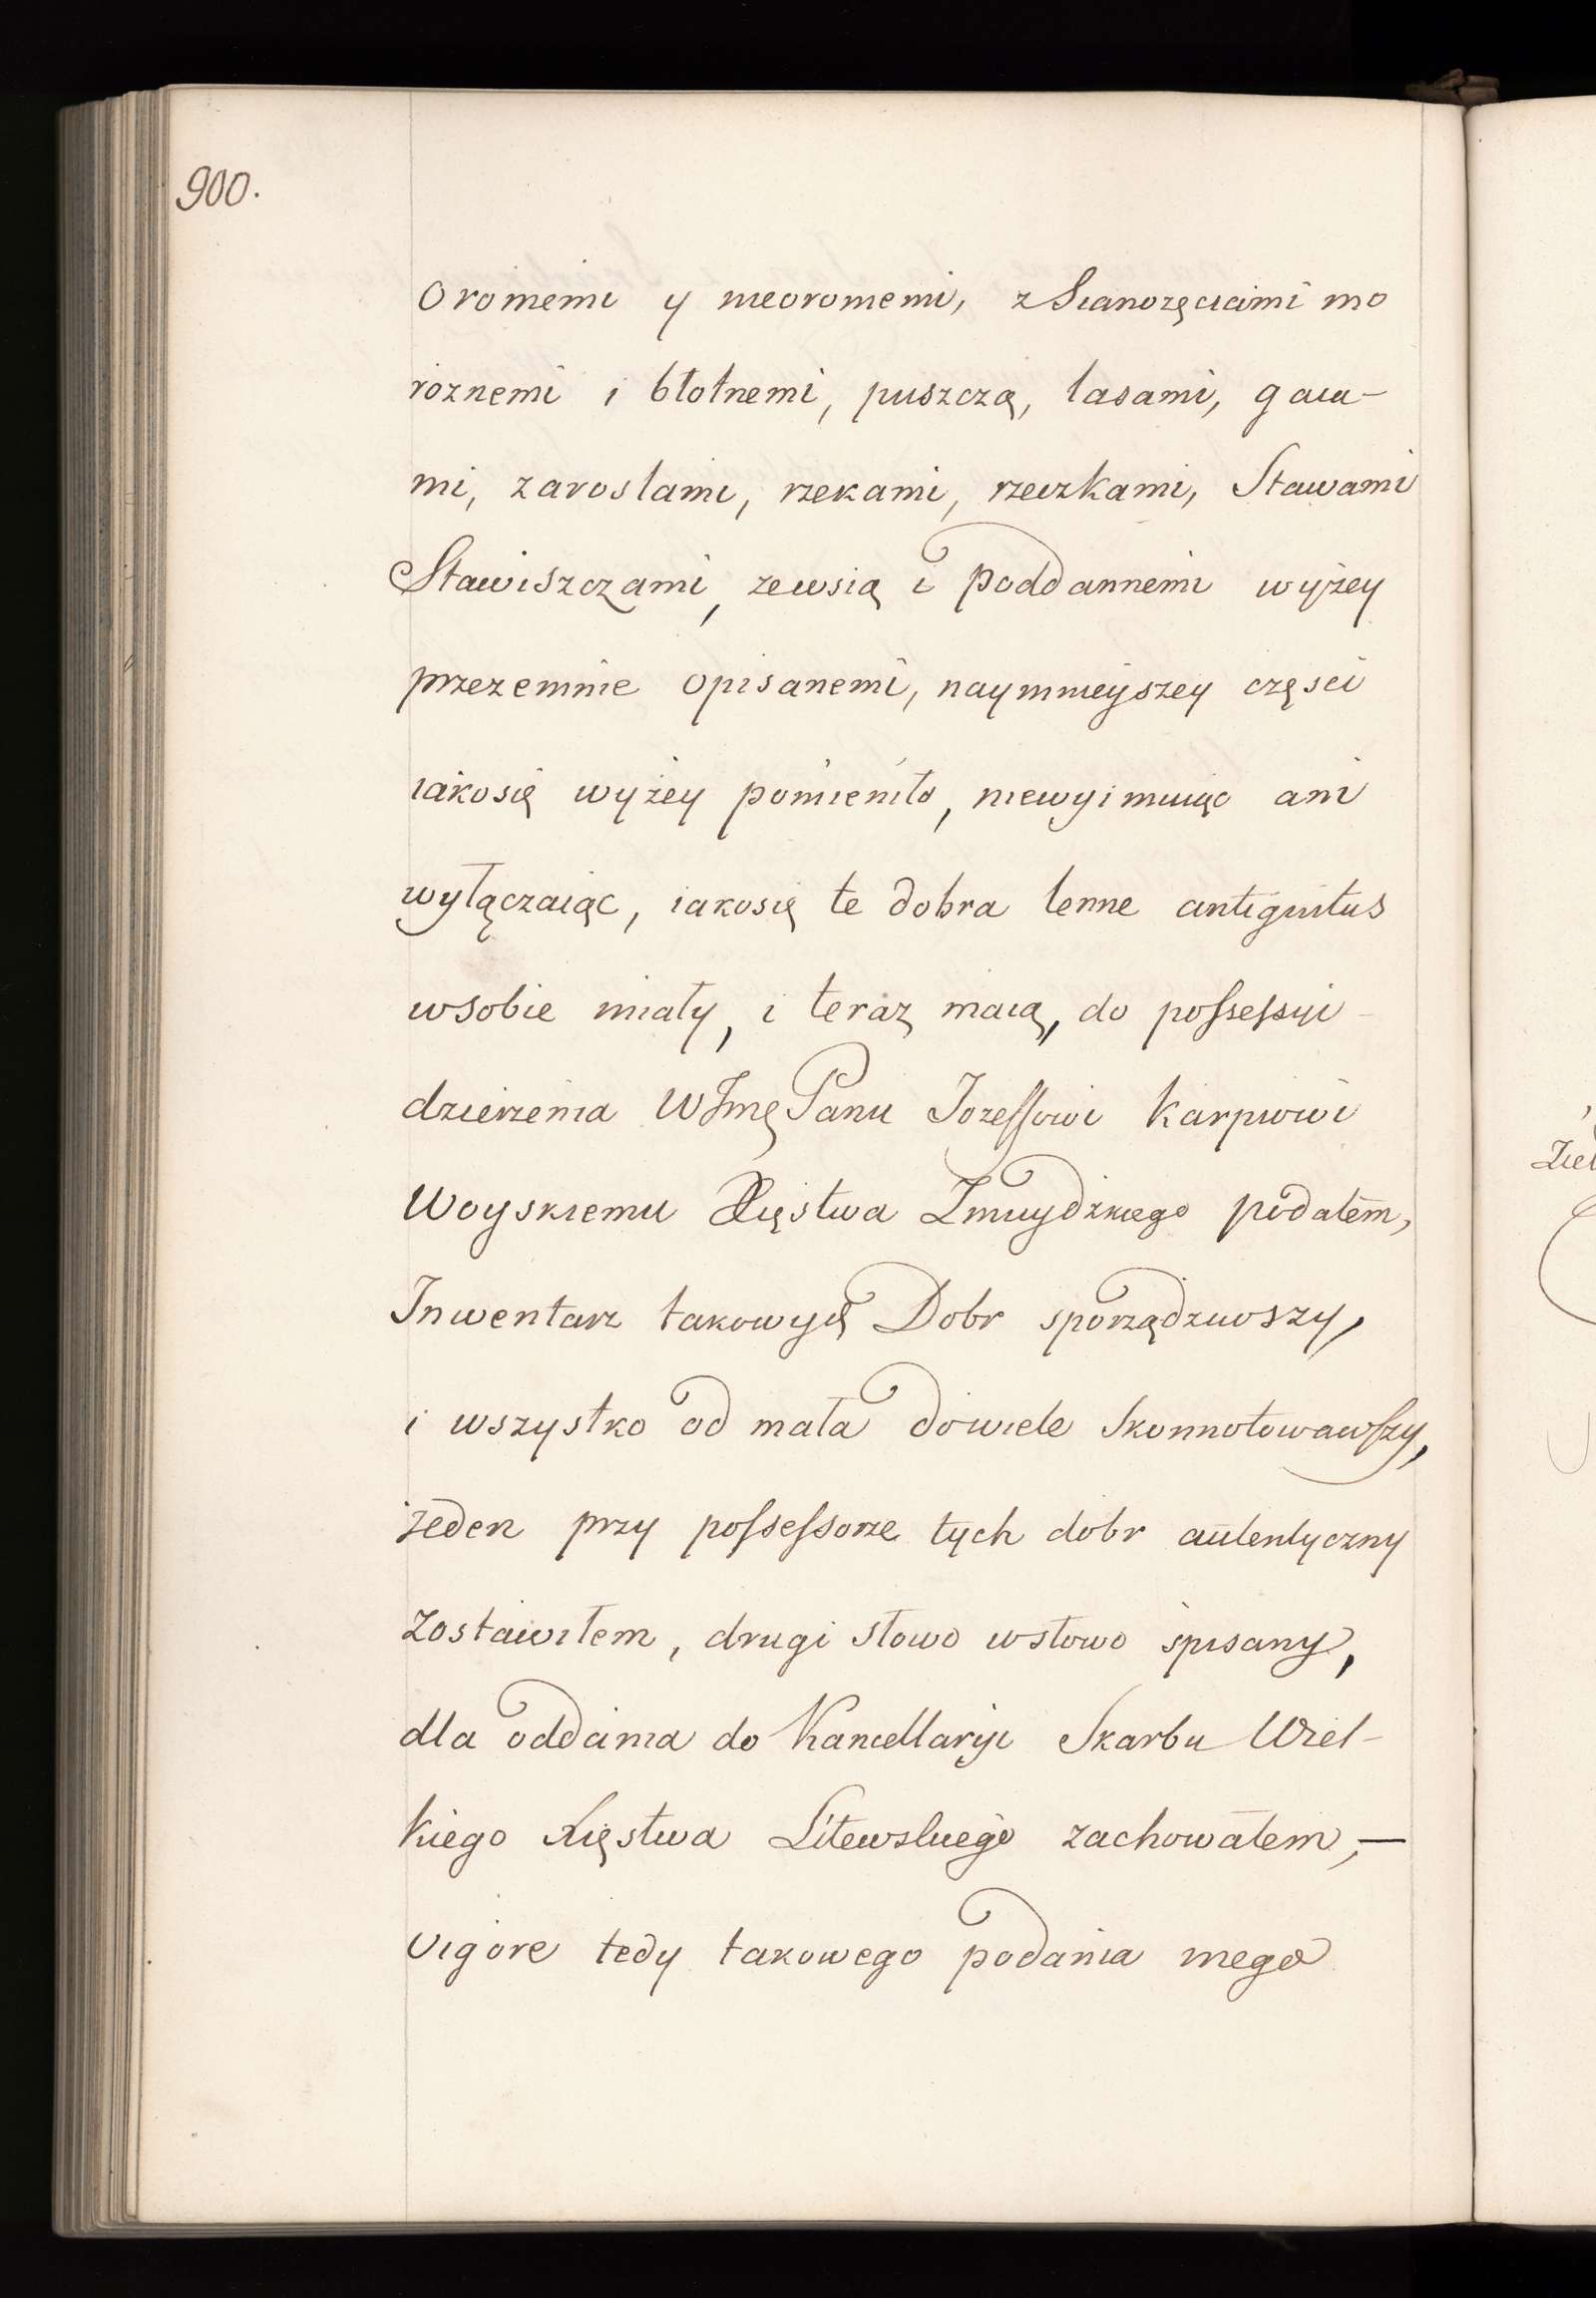 900.
oromemi y nieoromemi, z Sianozęciami mo
roznemi i błotnemi, puszczą, lasami, gaia-
mi, zaroslami, rzekami, rzeczkami, Stawami
Stawiszczami, zewsią i poddannemi wyżey
przezemnie opisanemi, naymnieyszey częsci
iakosię wyżey pomieniło, niewyimuiąc ani
wyłączaiąc, iakosię te dobra lenne antiguitus
wsobie miały, i teraz maią, do possessyi
dzierżenia WJmę Panu Jozeffowi Karpiowi
Woyskiemu Xięstwa Zmuydzkiego podałem,
Inwentarz takowych Dobr sporządziwszy,
i wszystko od mała dowiele Skonnotowawszy,
jeden przy possessorze tych dobr autentyczny
zostawiłem, drugi słowo wsłowo spisany,
dla oddania do Kancellaryi Skarbu Wiel-
kiego Xięstwa Litewskiego zachowałem,—
vigore tedy takowego podania mego